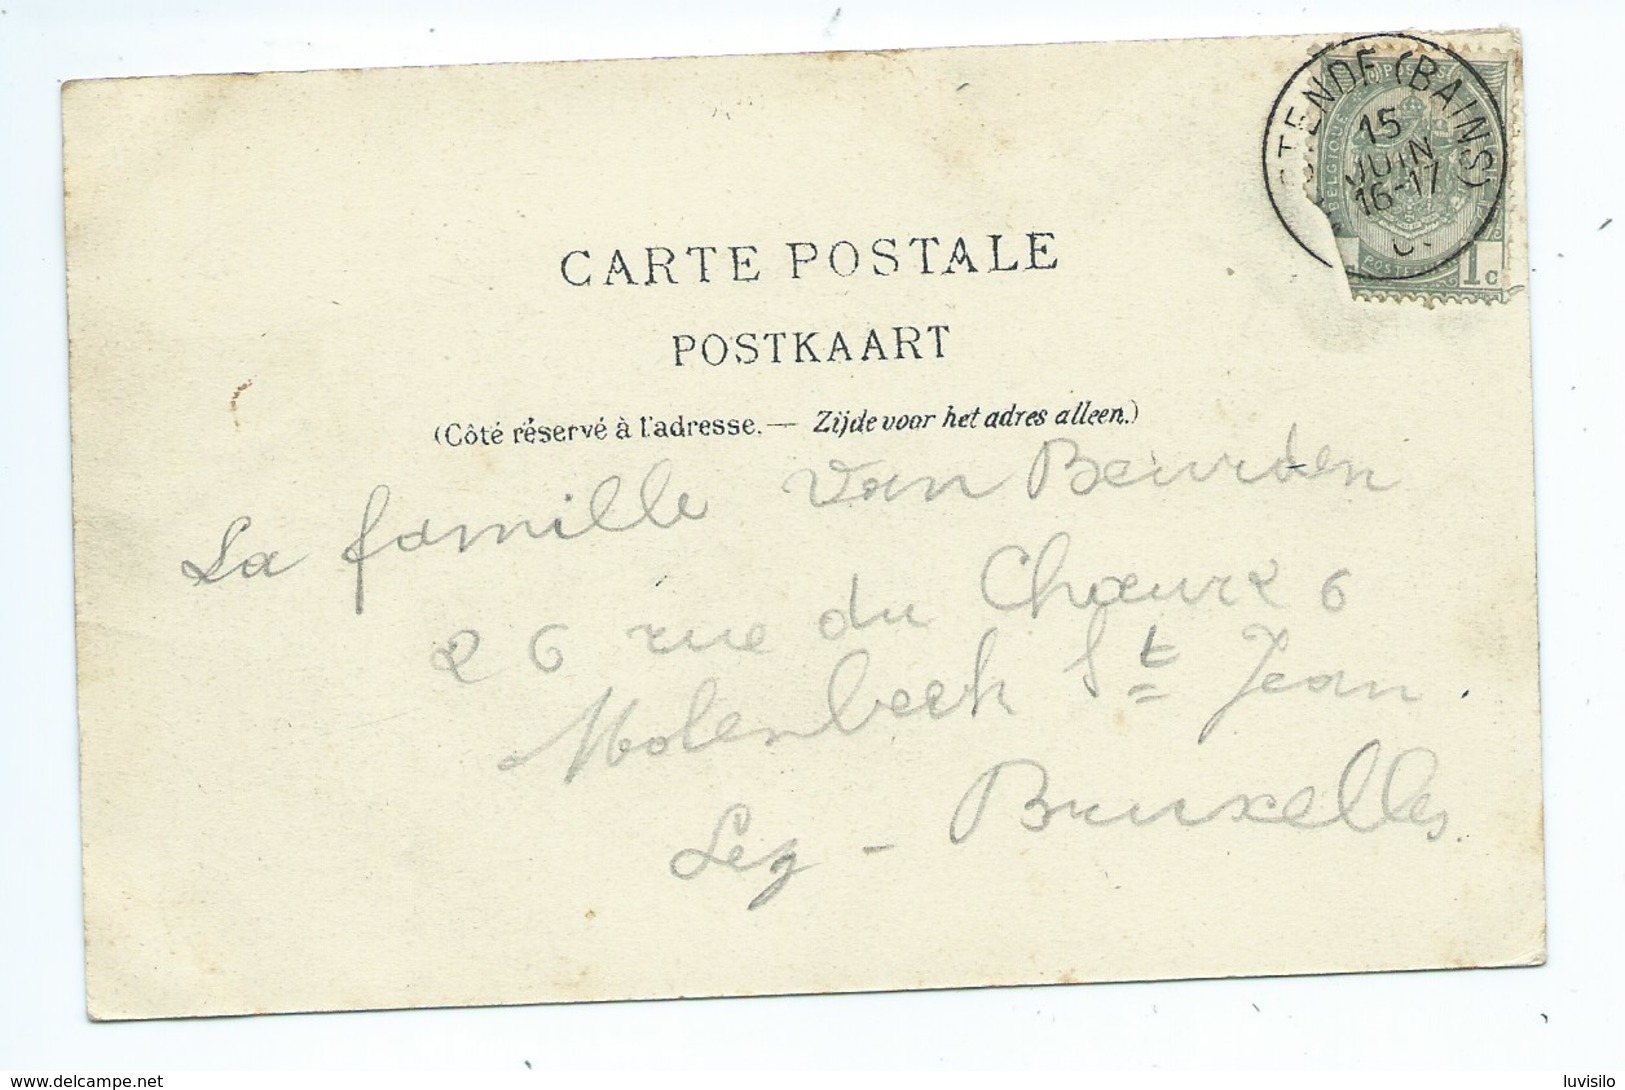 OSTENDE (BAINS)
15
JUIN
16-17
POSTES
BELGIQUE
POSTE
1c
CARTE POSTALE
POSTKAART
(Côté réservé à l'adresse. — Zijde voor het adres alleen.)
La famille Van Beurden
26 rue du Chœur 26
Molenbeek St Jean.
Lez - Bruxelles.
delcampe.net
luvisilo